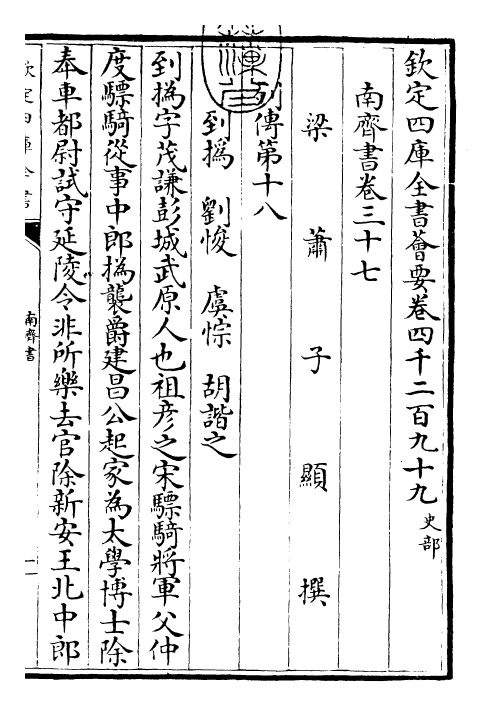 欽定四庫全書薈要卷四千二百九十九史部
南齊書卷三十七
梁蕭子顯撰
列傳第十八
到撝 劉悛 虞悰 胡諧之
到撝字茂謙彭城武原人也祖彦之宋驃騎將軍父仲
度驃騎從事中郎撝襲爵建昌公起家為太學博士除
奉車都尉試守延陵令非所樂去官除新安王北中郎
欽定四庫全書
南齊書
一